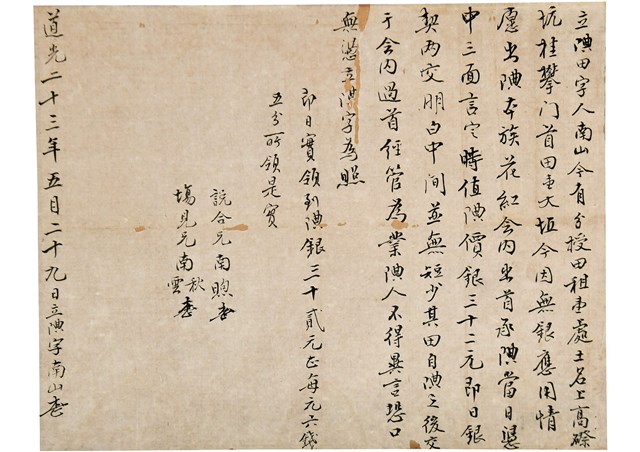 立典田字人南山今有分授田租壹處土名上高磜
坑桂攀门首田壹大坵今因無銀應用情
愿出典本族花紅会内出首承典當日憑
中三面言定時值典價銀三十二元即日銀
契両交明白中间並無短少其田自典之後交
于会内過首经管為業典人不得異言恐口
無憑立典字為照
即日實領到典銀三十貳元正每元六錢
五分所領是實
説合兄南照
塲見兄南秋雲
道光二十三年五月二十九日立典字南山